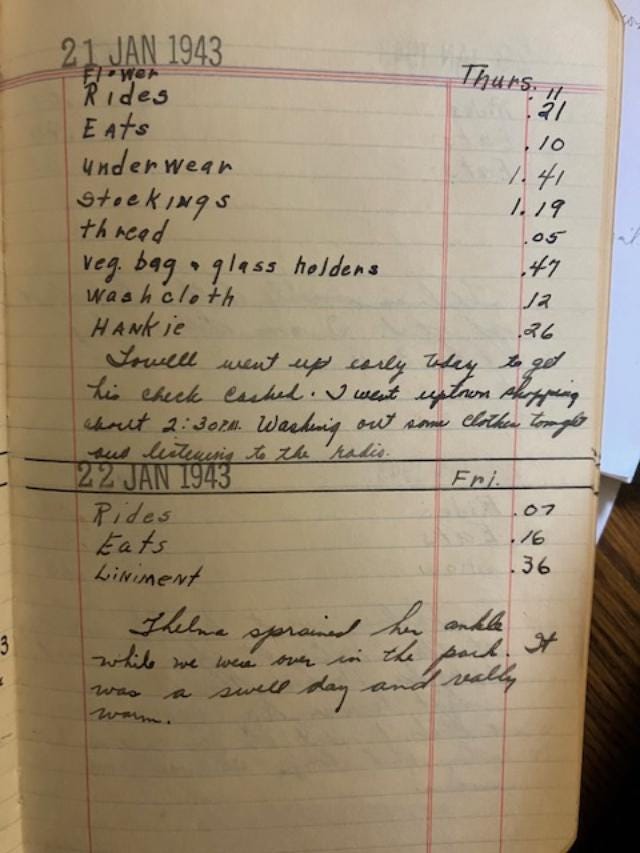 21 JAN 1943 Thurs.
Flower .11
Rides .21
Eats .10
underwear 1.41
stockings 1.19
thread .05
veg. bag & glass holders .47
Washcloth .12
HANKie .26
Lowell went up early today to get
his check cashed. I went uptown shopping
about 2:30 P.M. Washing out some clothes tonight
and listening to the radio.
22 JAN 1943 Fri.
Rides .07
Eats .16
LiNiMENT .36
Thelma sprained her ankle
while we were over in the park. It
was a swell day and really
warm.
3